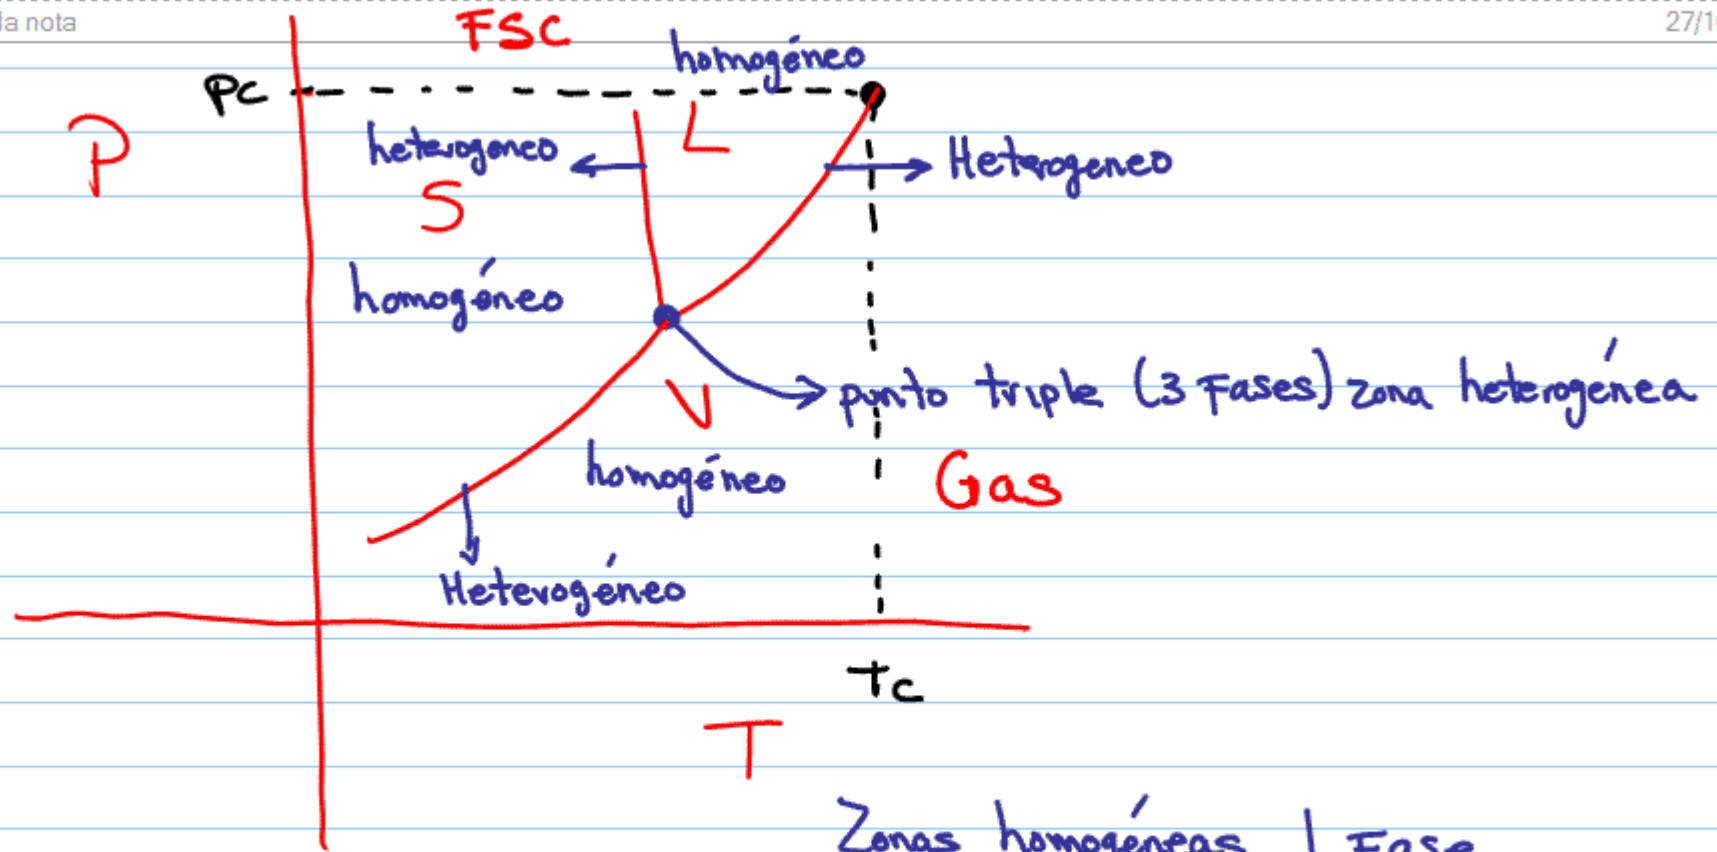 la nota
27/1
FSC
homogéneo
Pc
P
heterogeneo
L
Heterogeneo
S
homogéneo
punto triple (3 Fases) zona heterogénea
V
homogéneo
Gas
Heterogéneo
Tc
T
Zonas homogéneas 1 Fase